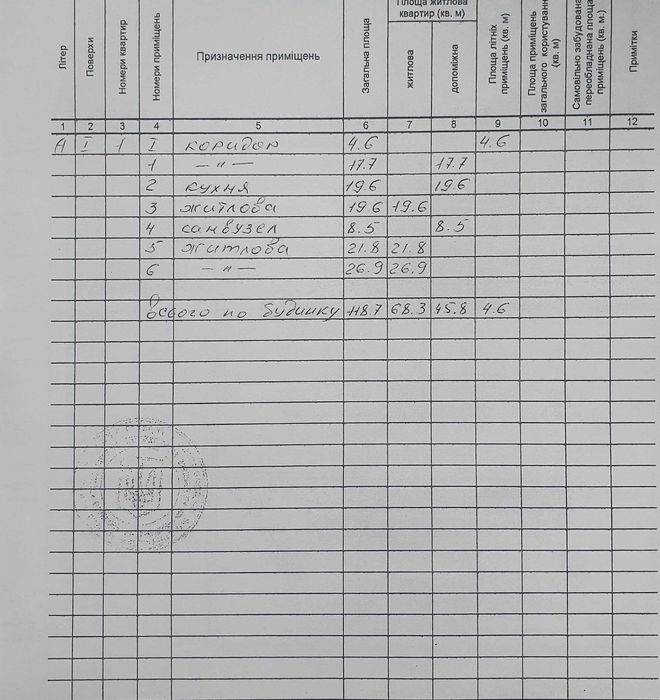 Літер
Поверхи
Номери квартир
Номери приміщень
Призначення приміщень
Загальна площа
Площа житлова
квартир (кв. м)
житлова
допоміжна
Площа літніх
приміщень (кв. м)
Площа приміщень
загального користування
(кв. м)
Самовільно забудована
переобладнана площа
приміщень (кв. м.)
Примітки
1 2 3 4 5 6 7 8 9 10 11 12
А І 1 І коридор 4.6 4.6
1 — " — 17.7 17.7
2 кухня 19.6 19.6
3 житлова 19.6 19.6
4 санвузел 8.5 8.5
5 житлова 21.8 21.8
6 — " — 26.9 26.9
Всього по будинку 118.7 68.3 45.8 4.6